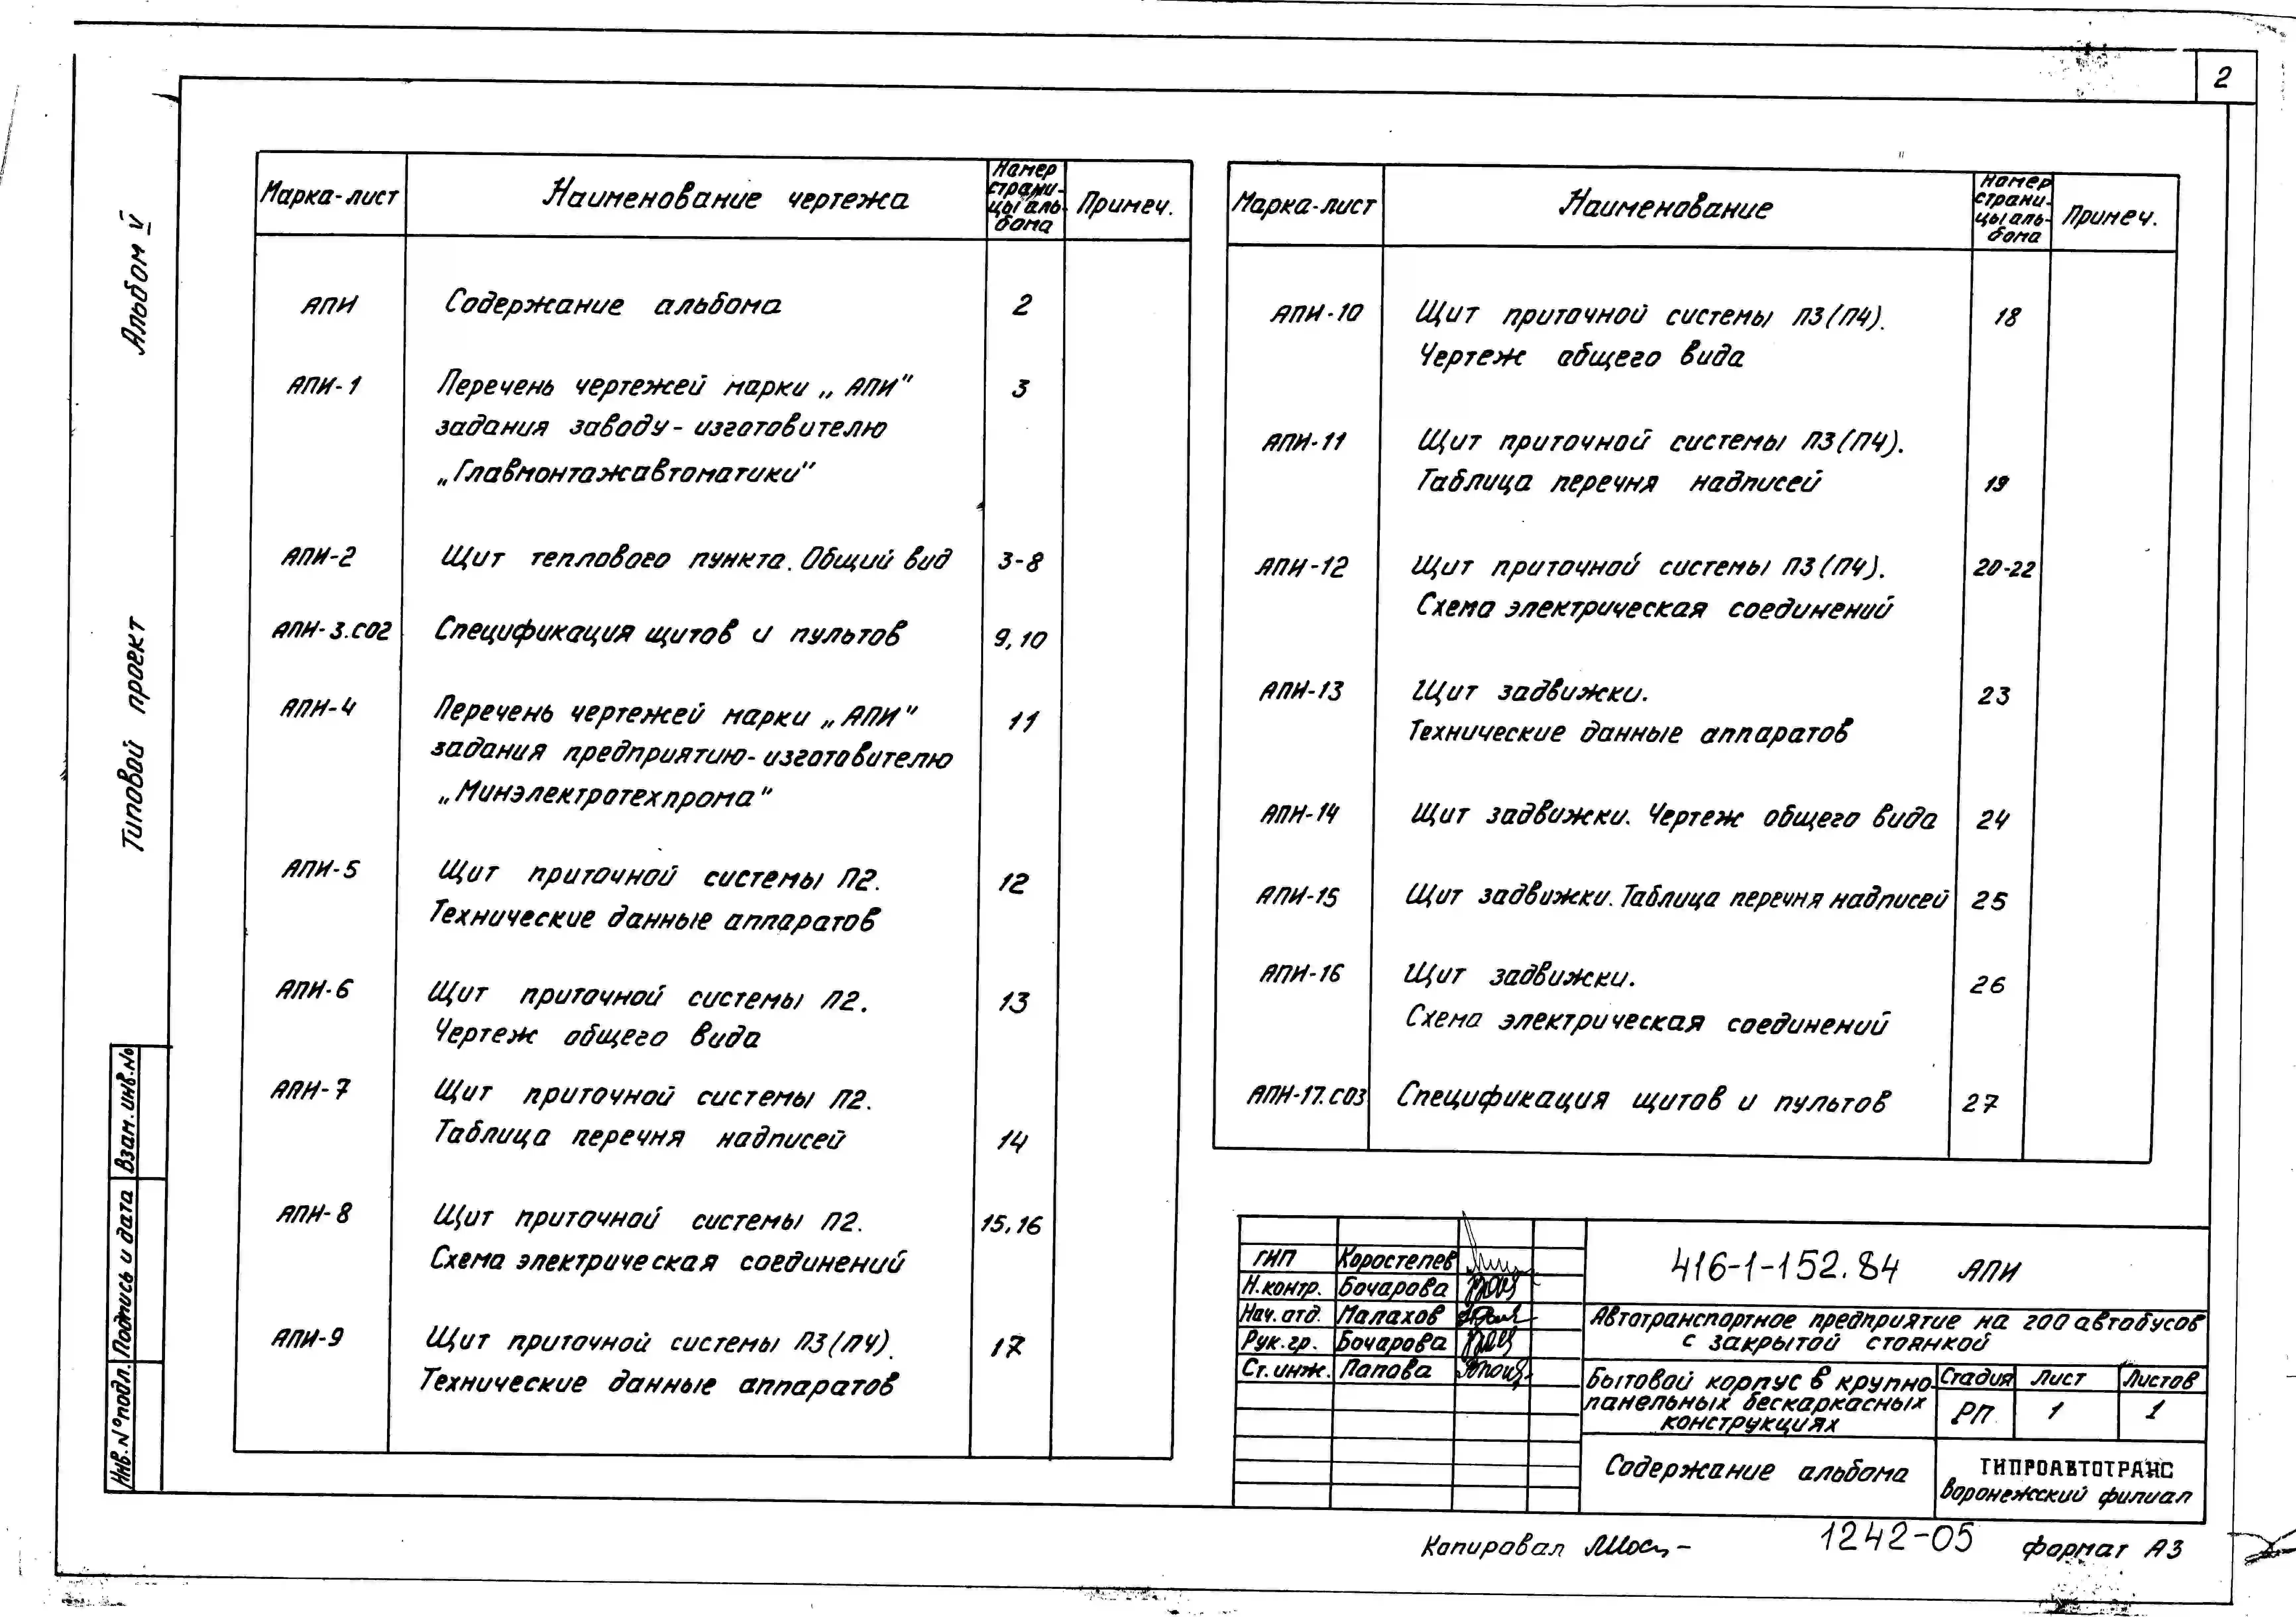 2
Альбом V
Типовой проект
Взам. инв. №
Подпись и дата
Инв. № подл.
Марка-лист Наименование чертежа Номер страни- цы аль- бома Примеч.
АПИ Содержание альбома 2
АПИ-1 Перечень чертежей марки „АПИ" 3
задания заводу-изготовителю
„Главмонтажавтоматики"
АПИ-2 Щит теплового пункта. Общий вид 3-8
АПИ-3.СО2 Спецификация щитов и пультов 9,10
АПИ-4 Перечень чертежей марки „АПИ" 11
задания предприятию-изготовителю
„Минэлектротехпрома"
АПИ-5 Щит приточной системы П2. 12
Технические данные аппаратов
АПИ-6 Щит приточной системы П2. 13
Чертеж общего вида
АПИ-7 Щит приточной системы П2.
Таблица перечня надписей 14
АПИ-8 Щит приточной системы П2. 15,16
Схема электрическая соединений
АПИ-9 Щит приточной системы П3(П4). 17
Технические данные аппаратов
Марка-лист Наименование Номер страни- цы аль- бома Примеч.
АПИ-10 Щит приточной системы П3(П4). 18
Чертеж общего вида
АПИ-11 Щит приточной системы П3(П4).
Таблица перечня надписей 19
АПИ-12 Щит приточной системы П3(П4). 20-22
Схема электрическая соединений
АПИ-13 Щит задвижки. 23
Технические данные аппаратов
АПИ-14 Щит задвижки. Чертеж общего вида 24
АПИ-15 Щит задвижки. Таблица перечня надписей 25
АПИ-16 Щит задвижки. 26
Схема электрическая соединений
АПИ-17.СО3 Спецификация щитов и пультов 27
ГИП Коростелев
Н.контр. Бочарова
Нач. отд. Малахов
Рук. гр. Бочарова
Ст. инж. Попова
416-1-152.84 АПИ
Автотранспортное предприятие на 200 автобусов
с закрытой стоянкой
Бытовой корпус в крупно-
панельных бескаркасных
конструкциях
Стадия Лист Листов
РП 1 1
Содержание альбома
ГИПРОАВТОТРАНС
Воронежский филиал
Копировал
1242-05
формат А3